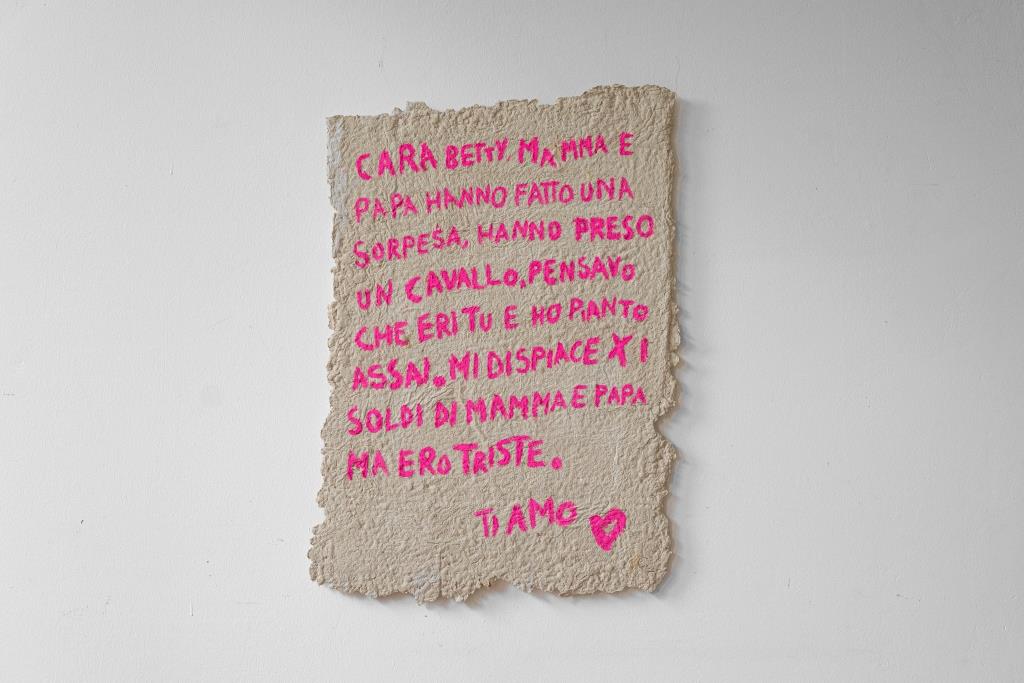 CARA BETTY, MAMMA E
PAPA HANNO FATTO UNA
SORPESA, HANNO PRESO
UN CAVALLO, PENSAVO
CHE ERI TU E HO PIANTO
ASSAI. MI DISPIACE X I
SOLDI DI MAMMA E PAPA
MA ERO TRISTE.
TI AMO